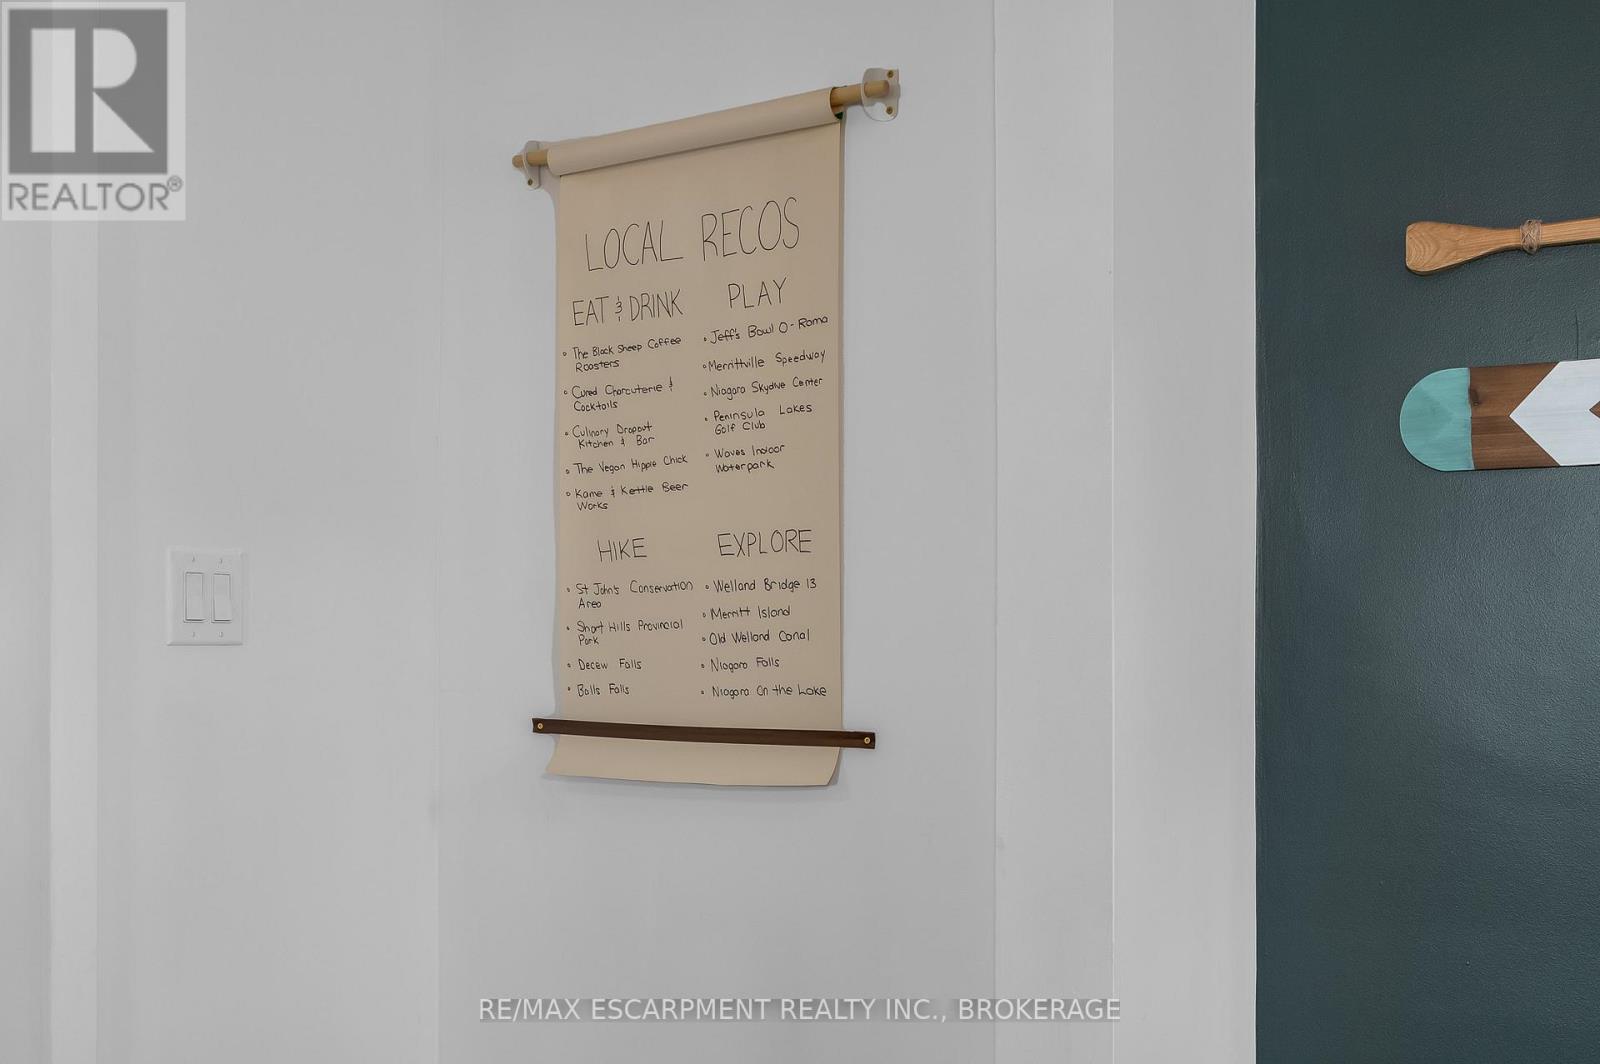 REALTOR®
LOCAL RECOS
EAT & DRINK
The Black Sheep Coffee
Roasters
Cured Charcuterie &
Cocktails
Culinary Dropout
Kitchen & Bar
The Vegan Hippie Chick
Kame & Kettle Beer
Works
PLAY
Jeff's Bowl O-Rama
Merrittville Speedway
Niagara Skydive Center
Peninsula Lakes
Golf Club
Waves Indoor
Waterpark
HIKE
St John's Conservation
Area
Short Hills Provincial
Park
Decew Falls
Balls Falls
EXPLORE
Welland Bridge 13
Merritt Island
Old Welland Canal
Niagara Falls
Niagara On the Lake
RE/MAX ESCARPMENT REALTY INC., BROKERAGE